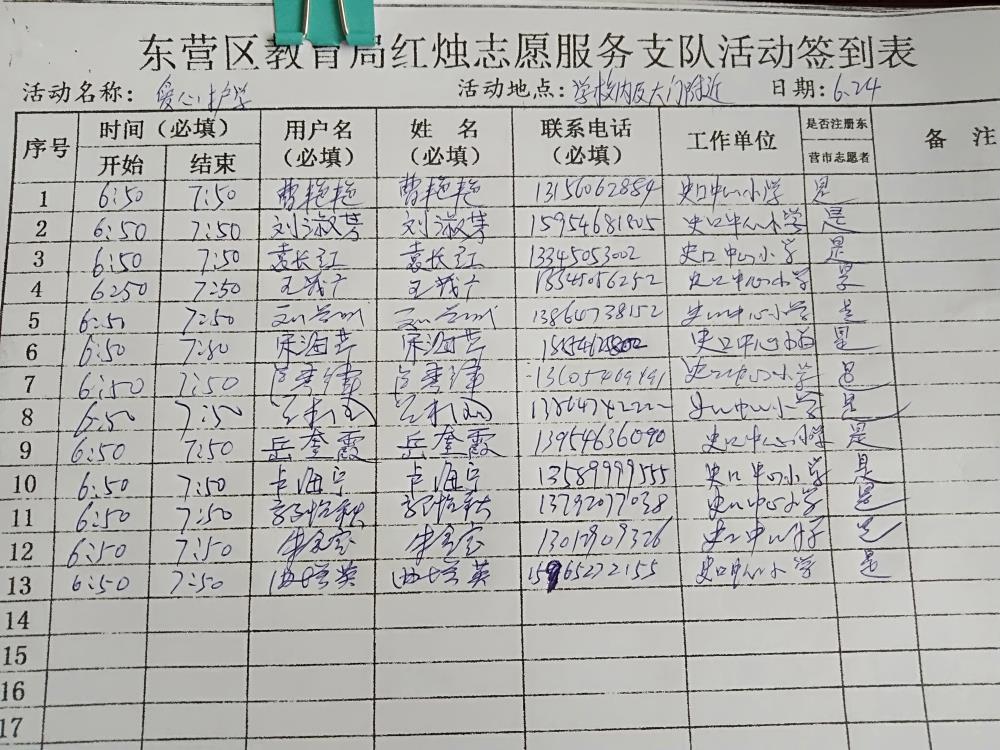 东营区教育局红烛志愿服务支队活动签到表
活动名称: 爱心护学 活动地点: 学校内及大门附近 日期: 6.24
序号 时间(必填) 用户名(必填) 姓名(必填) 联系电话(必填) 工作单位 是否注册东营市志愿者 备注
开始 结束
1 6:50 7:50 曹艳艳 曹艳艳 13156062884 史口中心小学 是
2 6:50 7:50 刘淑芹 刘淑芹 15954681805 史口中心小学 是
3 6:50 7:50 袁长江 袁长江 13345053002 史口中心小学 是
4 6:50 7:50 史口中心小学 是
5 6:50 7:50 13864738152 史口中心小学 是
6 6:50 7:50 宋海芹 宋海芹 史口中心小学 是
7 6:50 7:50 史口中心小学 是
8 6:50 7:50 史口中心小学 是
9 6:50 7:50 岳奎霞 岳奎霞 13954636090 史口中心小学 是
10 6:50 7:50 卢海宁 卢海宁 13589999555 史口中心小学 是
11 6:50 7:50 13792077038 史口中心小学 是
12 6:50 7:50 13012909326 史口中心小学 是
13 6:50 7:50 15965272155 史口中心小学 是
14
15
16
17